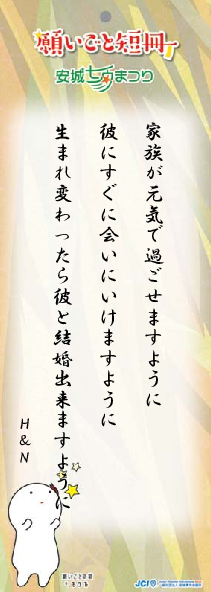 願いごと短冊
安城七夕まつり
家族が元気で過ごせますように
彼にすぐに会いにいけますように
生まれ変わったら彼と結婚出来ますように
H&N
願いごと短冊
JCI